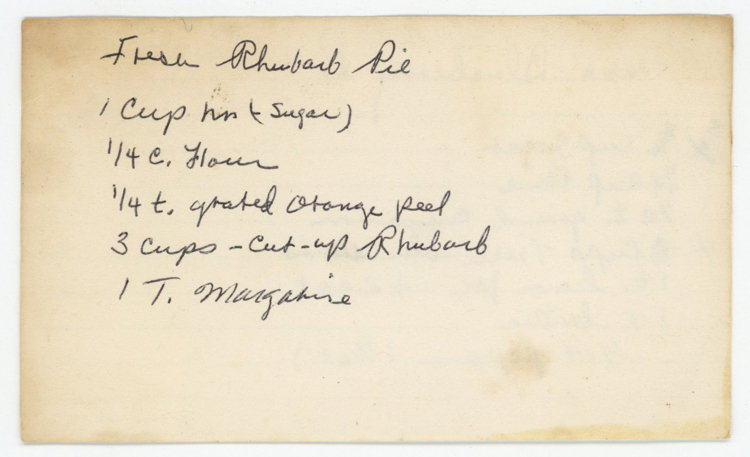 Fresh Rhubarb Pie
1 Cup (Sugar)
1/4 c. Flour
1/4 t. grated Orange peel
3 cups - cut-up Rhubarb
1 T. Margarine